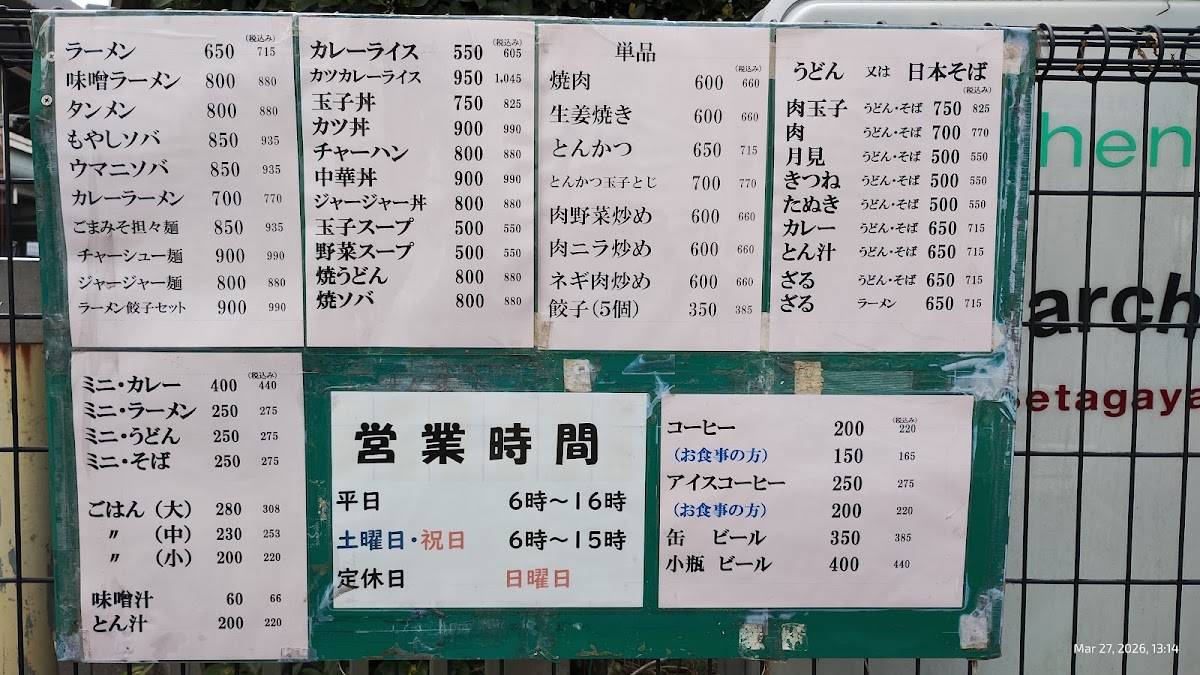 (税込み)
ラーメン 650 715
味噌ラーメン 800 880
タンメン 800 880
もやしソバ 850 935
ウマニソバ 850 935
カレーラーメン 700 770
ごまみそ担々麺 850 935
チャーシュー麺 900 990
ジャージャー麺 800 880
ラーメン餃子セット 900 990
(税込み)
カレーライス 550 605
カツカレーライス 950 1,045
玉子丼 750 825
カツ丼 900 990
チャーハン 800 880
中華丼 900 990
ジャージャー丼 800 880
玉子スープ 500 550
野菜スープ 500 550
焼うどん 800 880
焼ソバ 800 880
単品
(税込み)
焼肉 600 660
生姜焼き 600 660
とんかつ 650 715
とんかつ玉子とじ 700 770
肉野菜炒め 600 660
肉ニラ炒め 600 660
ネギ肉炒め 600 660
餃子(5個) 350 385
うどん 又は 日本そば
(税込み)
肉玉子 うどん・そば 750 825
肉 うどん・そば 700 770
月見 うどん・そば 500 550
きつね うどん・そば 500 550
たぬき うどん・そば 500 550
カレー うどん・そば 650 715
とん汁 うどん・そば 650 715
ざる うどん・そば 650 715
ざる ラーメン 650 715
(税込み)
ミニ・カレー 400 440
ミニ・ラーメン 250 275
ミニ・うどん 250 275
ミニ・そば 250 275
ごはん(大) 280 308
〃 (中) 230 253
〃 (小) 200 220
味噌汁 60 66
とん汁 200 220
営業時間
平日 6時～16時
土曜日・祝日 6時～15時
定休日 日曜日
(税込み)
コーヒー 200 220
(お食事の方) 150 165
アイスコーヒー 250 275
(お食事の方) 200 220
缶 ビール 350 385
小瓶 ビール 400 440
hen
arch
etagaya
Mar 27, 2026, 13:14